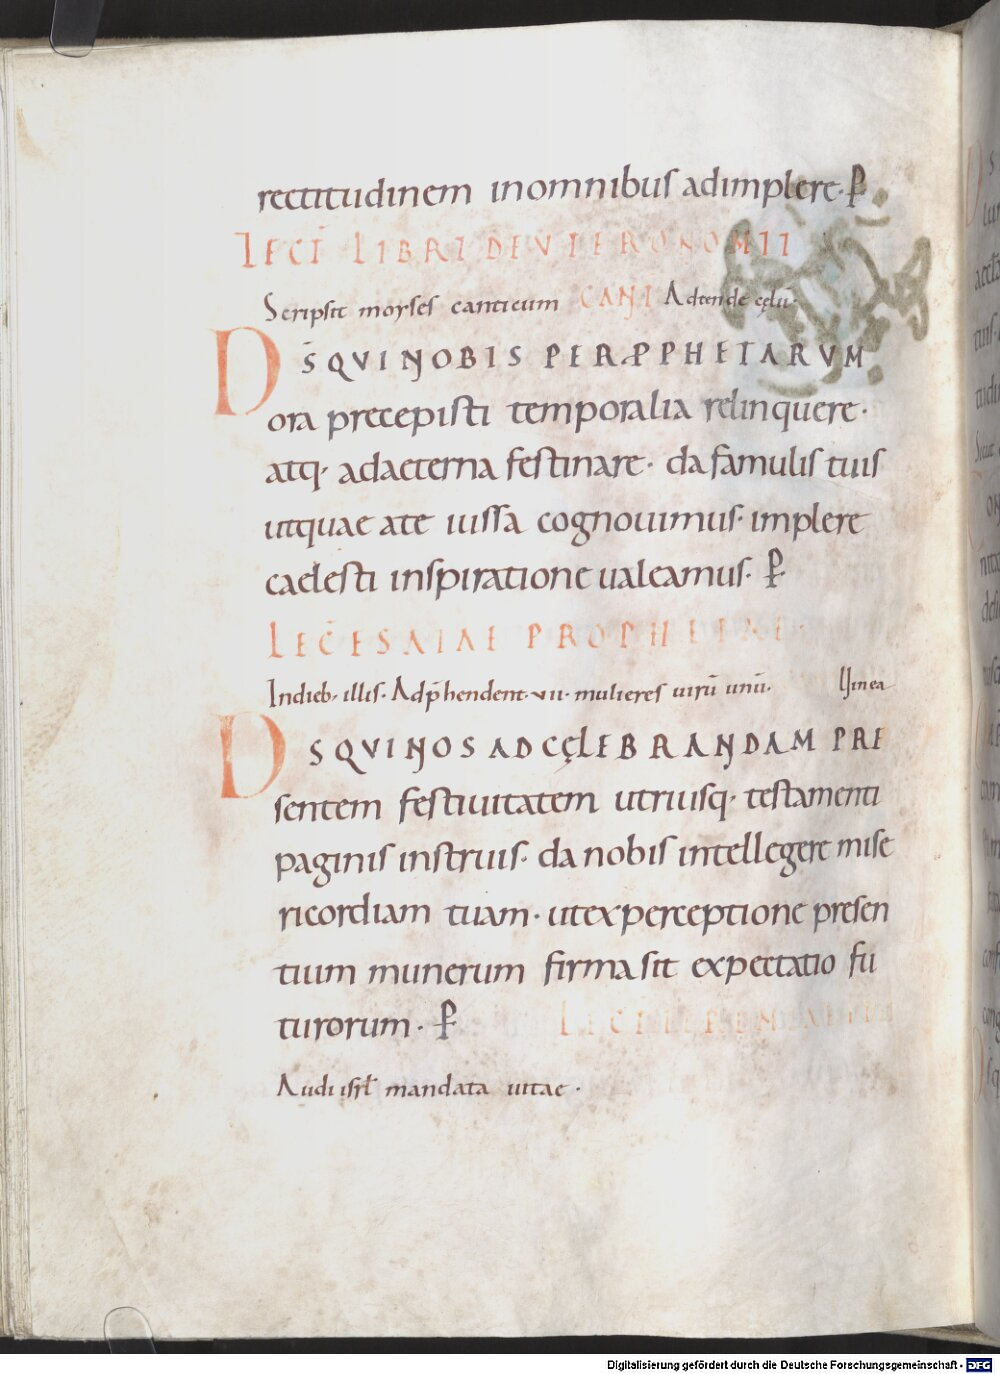 rectitudinem inomnibus adimplere. P̄
LECT̄ LIBRI DEUTERONOMII
Scripsit moyses canticum CANT̄ Adtende cęlū.
DS̄ QVI NOBIS PER PPHETARVM
ora precepisti temporalia relinquere.
atq. adaeterna festinare. da famulis tuis
utquae ate iussa cognouimus. implere
caelesti inspiratione ualeamus. P̄
LEC̄ ESAIAE PROPHETAE
Indieb. illis. Adp̄hendent. vii. mulieres uirū unū. Uinea
DS QVI NOS AD CĘLEBRANDAM PRE
sentem festiuitatem utriusq. testamenti
paginis instruis. da nobis intellegere mise
ricordiam tuam. utexperceptione presen
tium munerum firma sit expectatio fu
turorum. P̄ LECT̄ IEREMIAE
Audi isrl̄ mandata uitae.
Digitalisierung gefördert durch die Deutsche Forschungsgemeinschaft - DFG